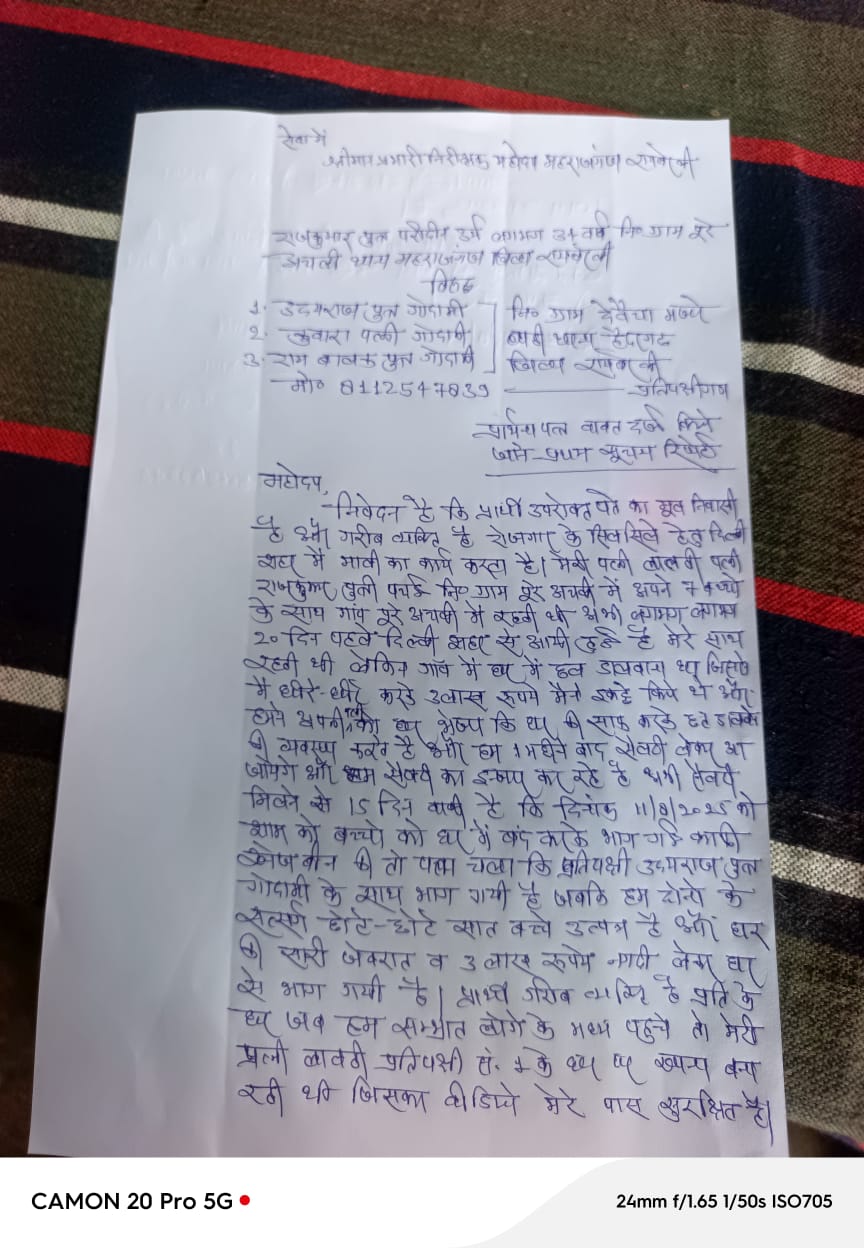 सेवा में
श्रीमान प्रभारी निरीक्षक महोदय महराजगंज रायबरेली
राजकुमार पुत्र परीदीन उर्म लगभग 34 वर्ष नि० ग्राम पूरे
अचली थाना महराजगंज जिला रायबरेली
विरुद्ध
1. उदयराज पुत्र गोदामी
2. कुवारा पत्नी गोदामी
3. राम बालक पुत्र गोदामी
नि० ग्राम देवैचा मजरे
थाना हैदरगढ़
जिला रायबरेली
मो० 8112547839 प्रतिपक्षीगण
प्रार्थना पत्र बावत दर्ज किये
जाने प्रथम सूचना रिपोर्ट
महोदय,
निवेदन है कि प्रार्थी उपरोक्त पते का मूल निवासी
है और गरीब व्यक्ति है रोजगार के सिलसिले हेतु दिल्ली
शहर में माली का कार्य करता है। मेरी पत्नी लालती पत्नी
राजकुमार पुत्री नि० ग्राम पूरे अचली में अपने 7 बच्चो
के साथ गांव पूरे अचली में रहती थी अभी लगभग लगभग
20 दिन पहले दिल्ली शहर से आयी हुई है मेरे साथ
रहती थी लेकिन गाँव में घर में छत डलवाना था जिसके
मै धीरे-धीरे करके 3 लाख रुपये मैने इकट्ठे किये थे और
हमने अपनी पत्नी को घर भेजा कि घर की साफ करके छत डालने
की व्यवस्था करते है और हम 1 महीने बाद सैलरी लेकर आ
जायेगे और हम सैलरी का इन्तजार कर रहे है अभी सैलरी
मिलने से 15 दिन बाकी है कि दिनांक 11/8/2025 को
शाम को बच्चो को घर में बंद करके भाग गई काफी
खोज बीन की तो पता चला कि प्रतिपक्षी उदयराज पुत्र
गोदामी के साथ भाग गयी है जबकि हम दोनो के
संसर्ग छोटे-छोटे सात बच्चे उत्पन्न है और घर
की सारी जेवरात व 3 लाख रुपये नगदी लेकर घर
से भाग गयी है। प्रार्थी गरीब व्यक्ति है प्रति के
घर जब हम सम्भ्रांत लोगो के मध्य पहुचे तो मेरी
पत्नी लालती प्रतिपक्षी सं. 1 के घर पर खाना बना
रही थी जिसका वीडियो मेरे पास सुरक्षित है।
CAMON 20 Pro 5G
24mm f/1.65 1/50s ISO705